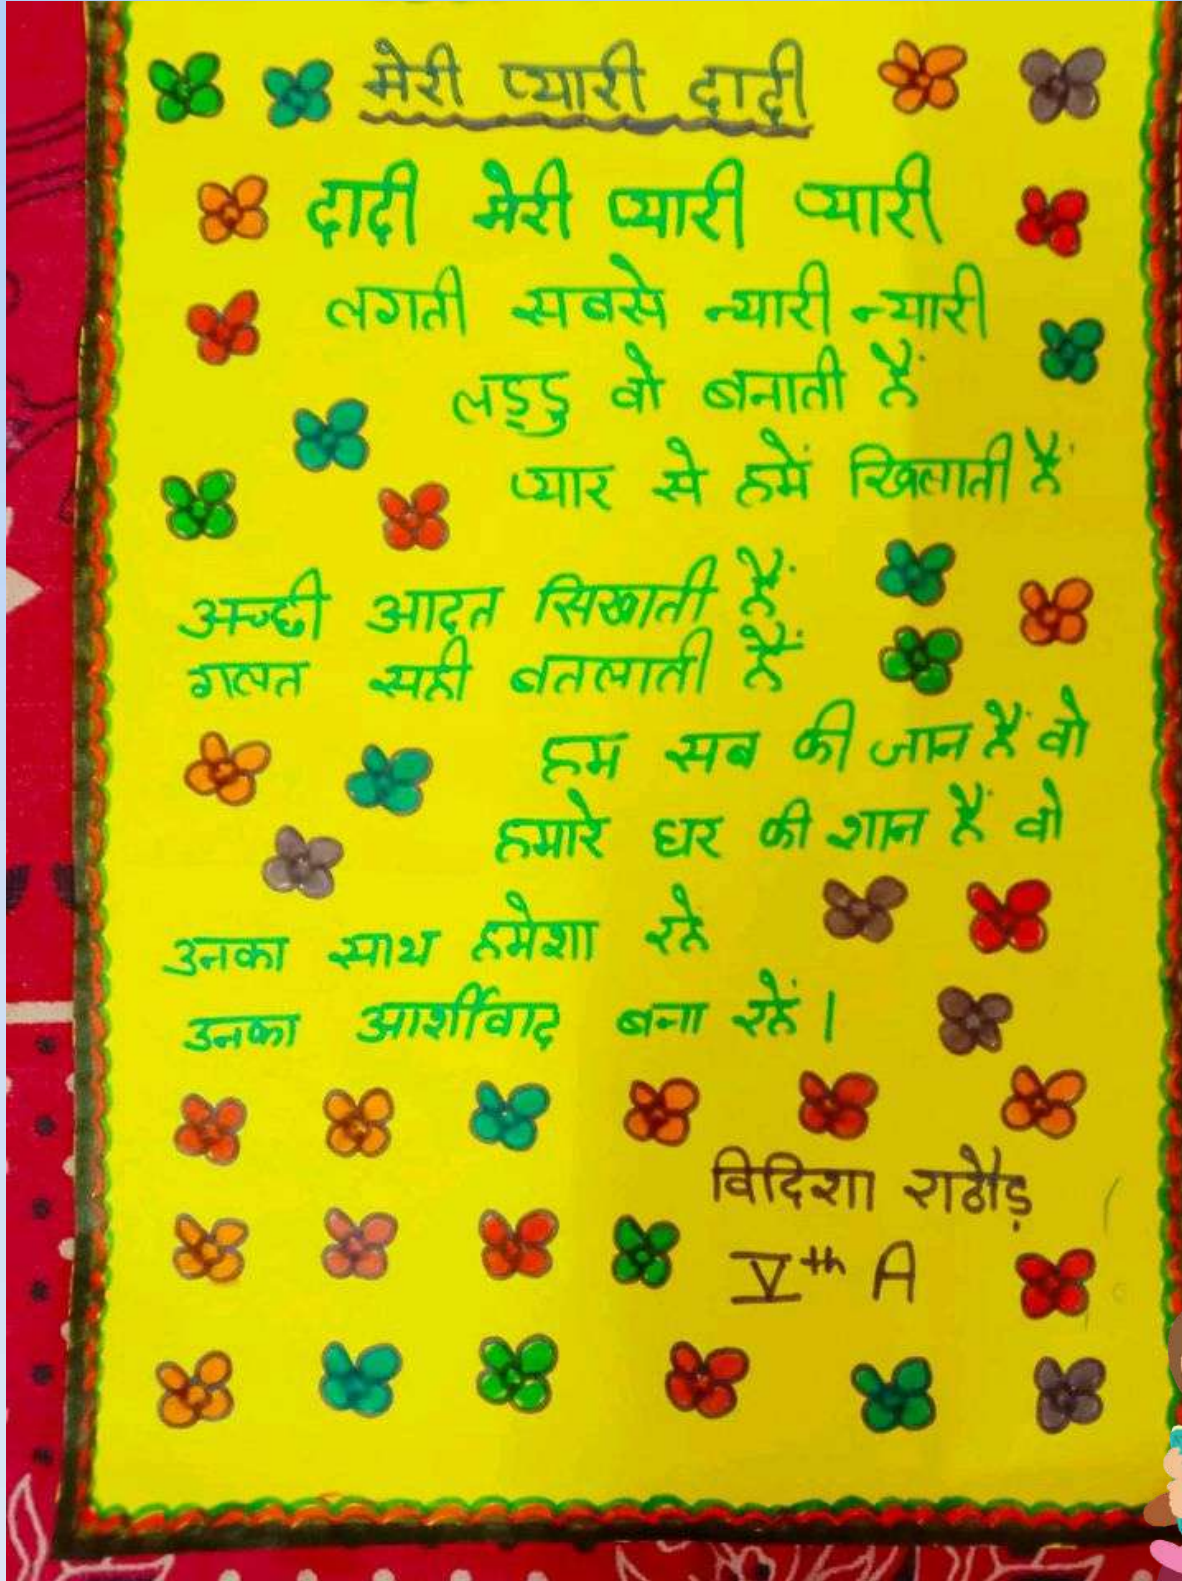 मेरी प्यारी दादी
दादी मेरी प्यारी प्यारी
लगती सबसे न्यारी न्यारी
लड्डु वो बनाती हैं
प्यार से हमें खिलाती हैं
अच्छी आदत सिखाती हैं
गलत सही बतलाती हैं
हम सब की जान हैं वो
हमारे घर की शान हैं वो
उनका साथ हमेशा रहे
उनका आर्शीवाद बना रहें।
विदिशा राठौड़
Vth A